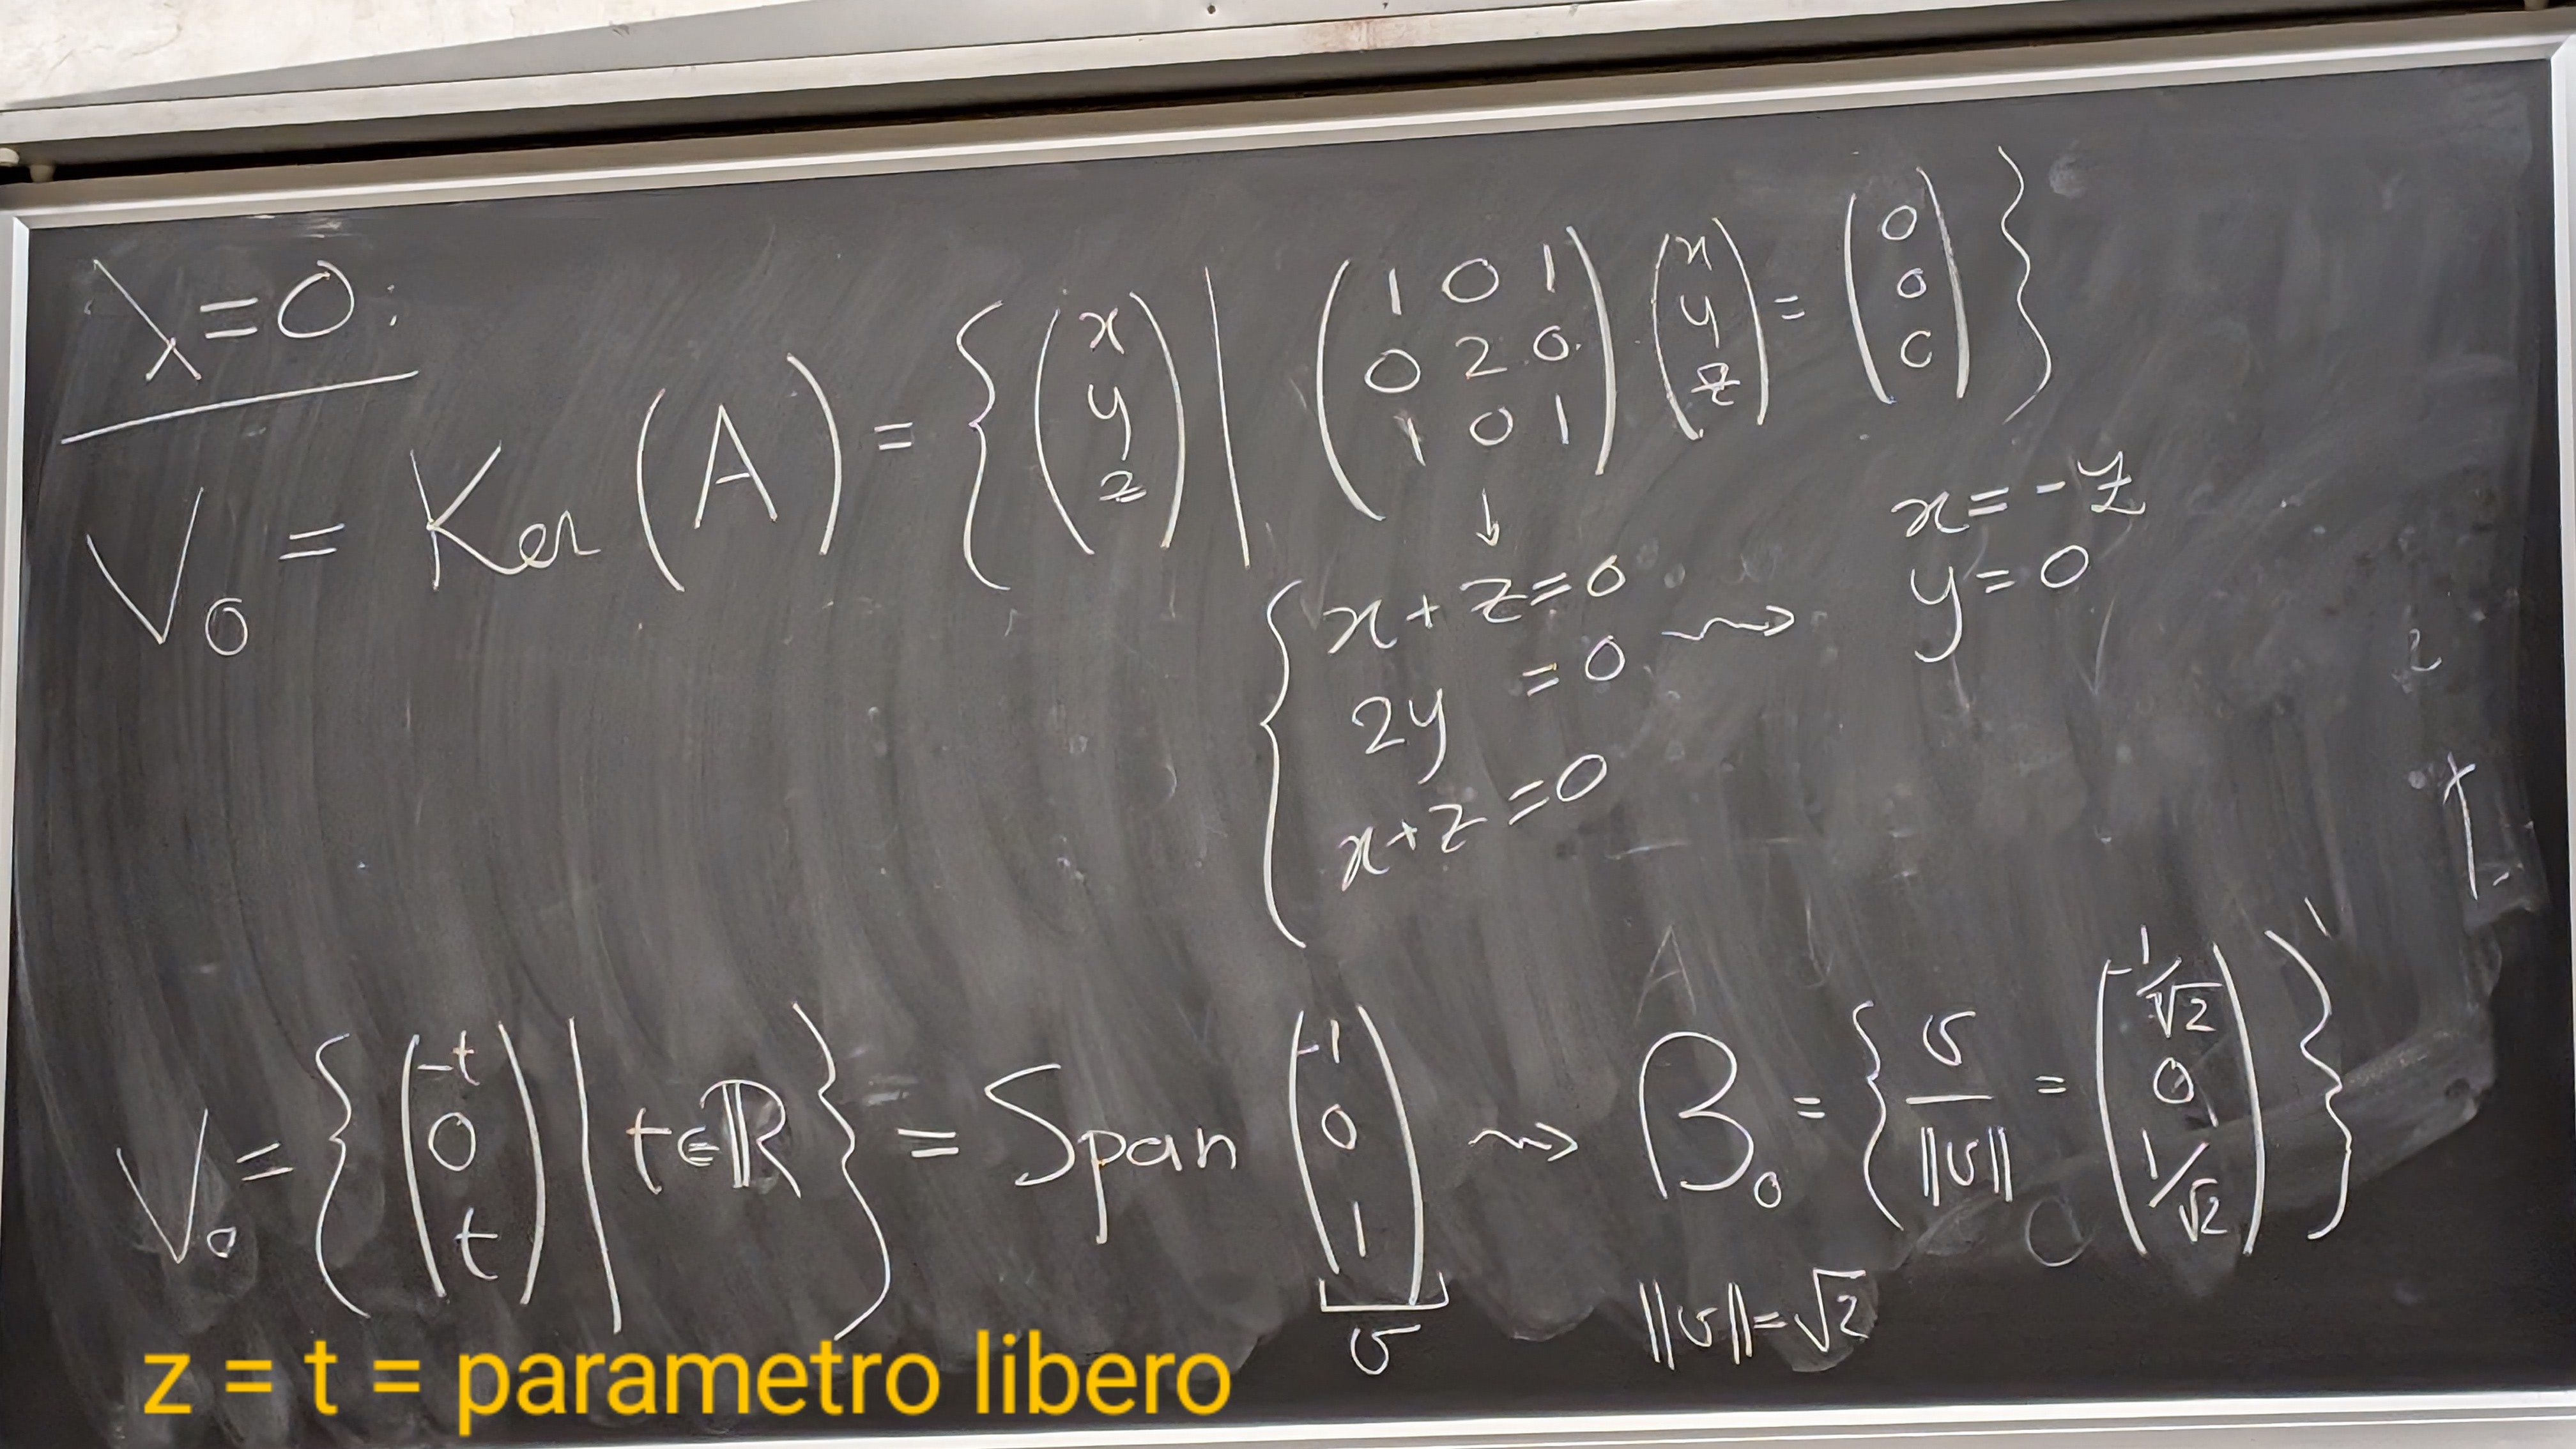 λ=0:
V₀ = Ker (A) = { (x y z) | (1 0 1 / 0 2 0 / 1 0 1) (x y z) = (0 0 0) }
↓
{ x+z=0 ⇝ x=-z
2y =0 y=0
x+z=0
V₀ = { (-t 0 t) | t∈ℝ } = Span (-1 0 1) ⇝ B₀ = { v/||v|| = (-1/√2 0 1/√2) }
v ||v||=√2
z = t = parametro libero